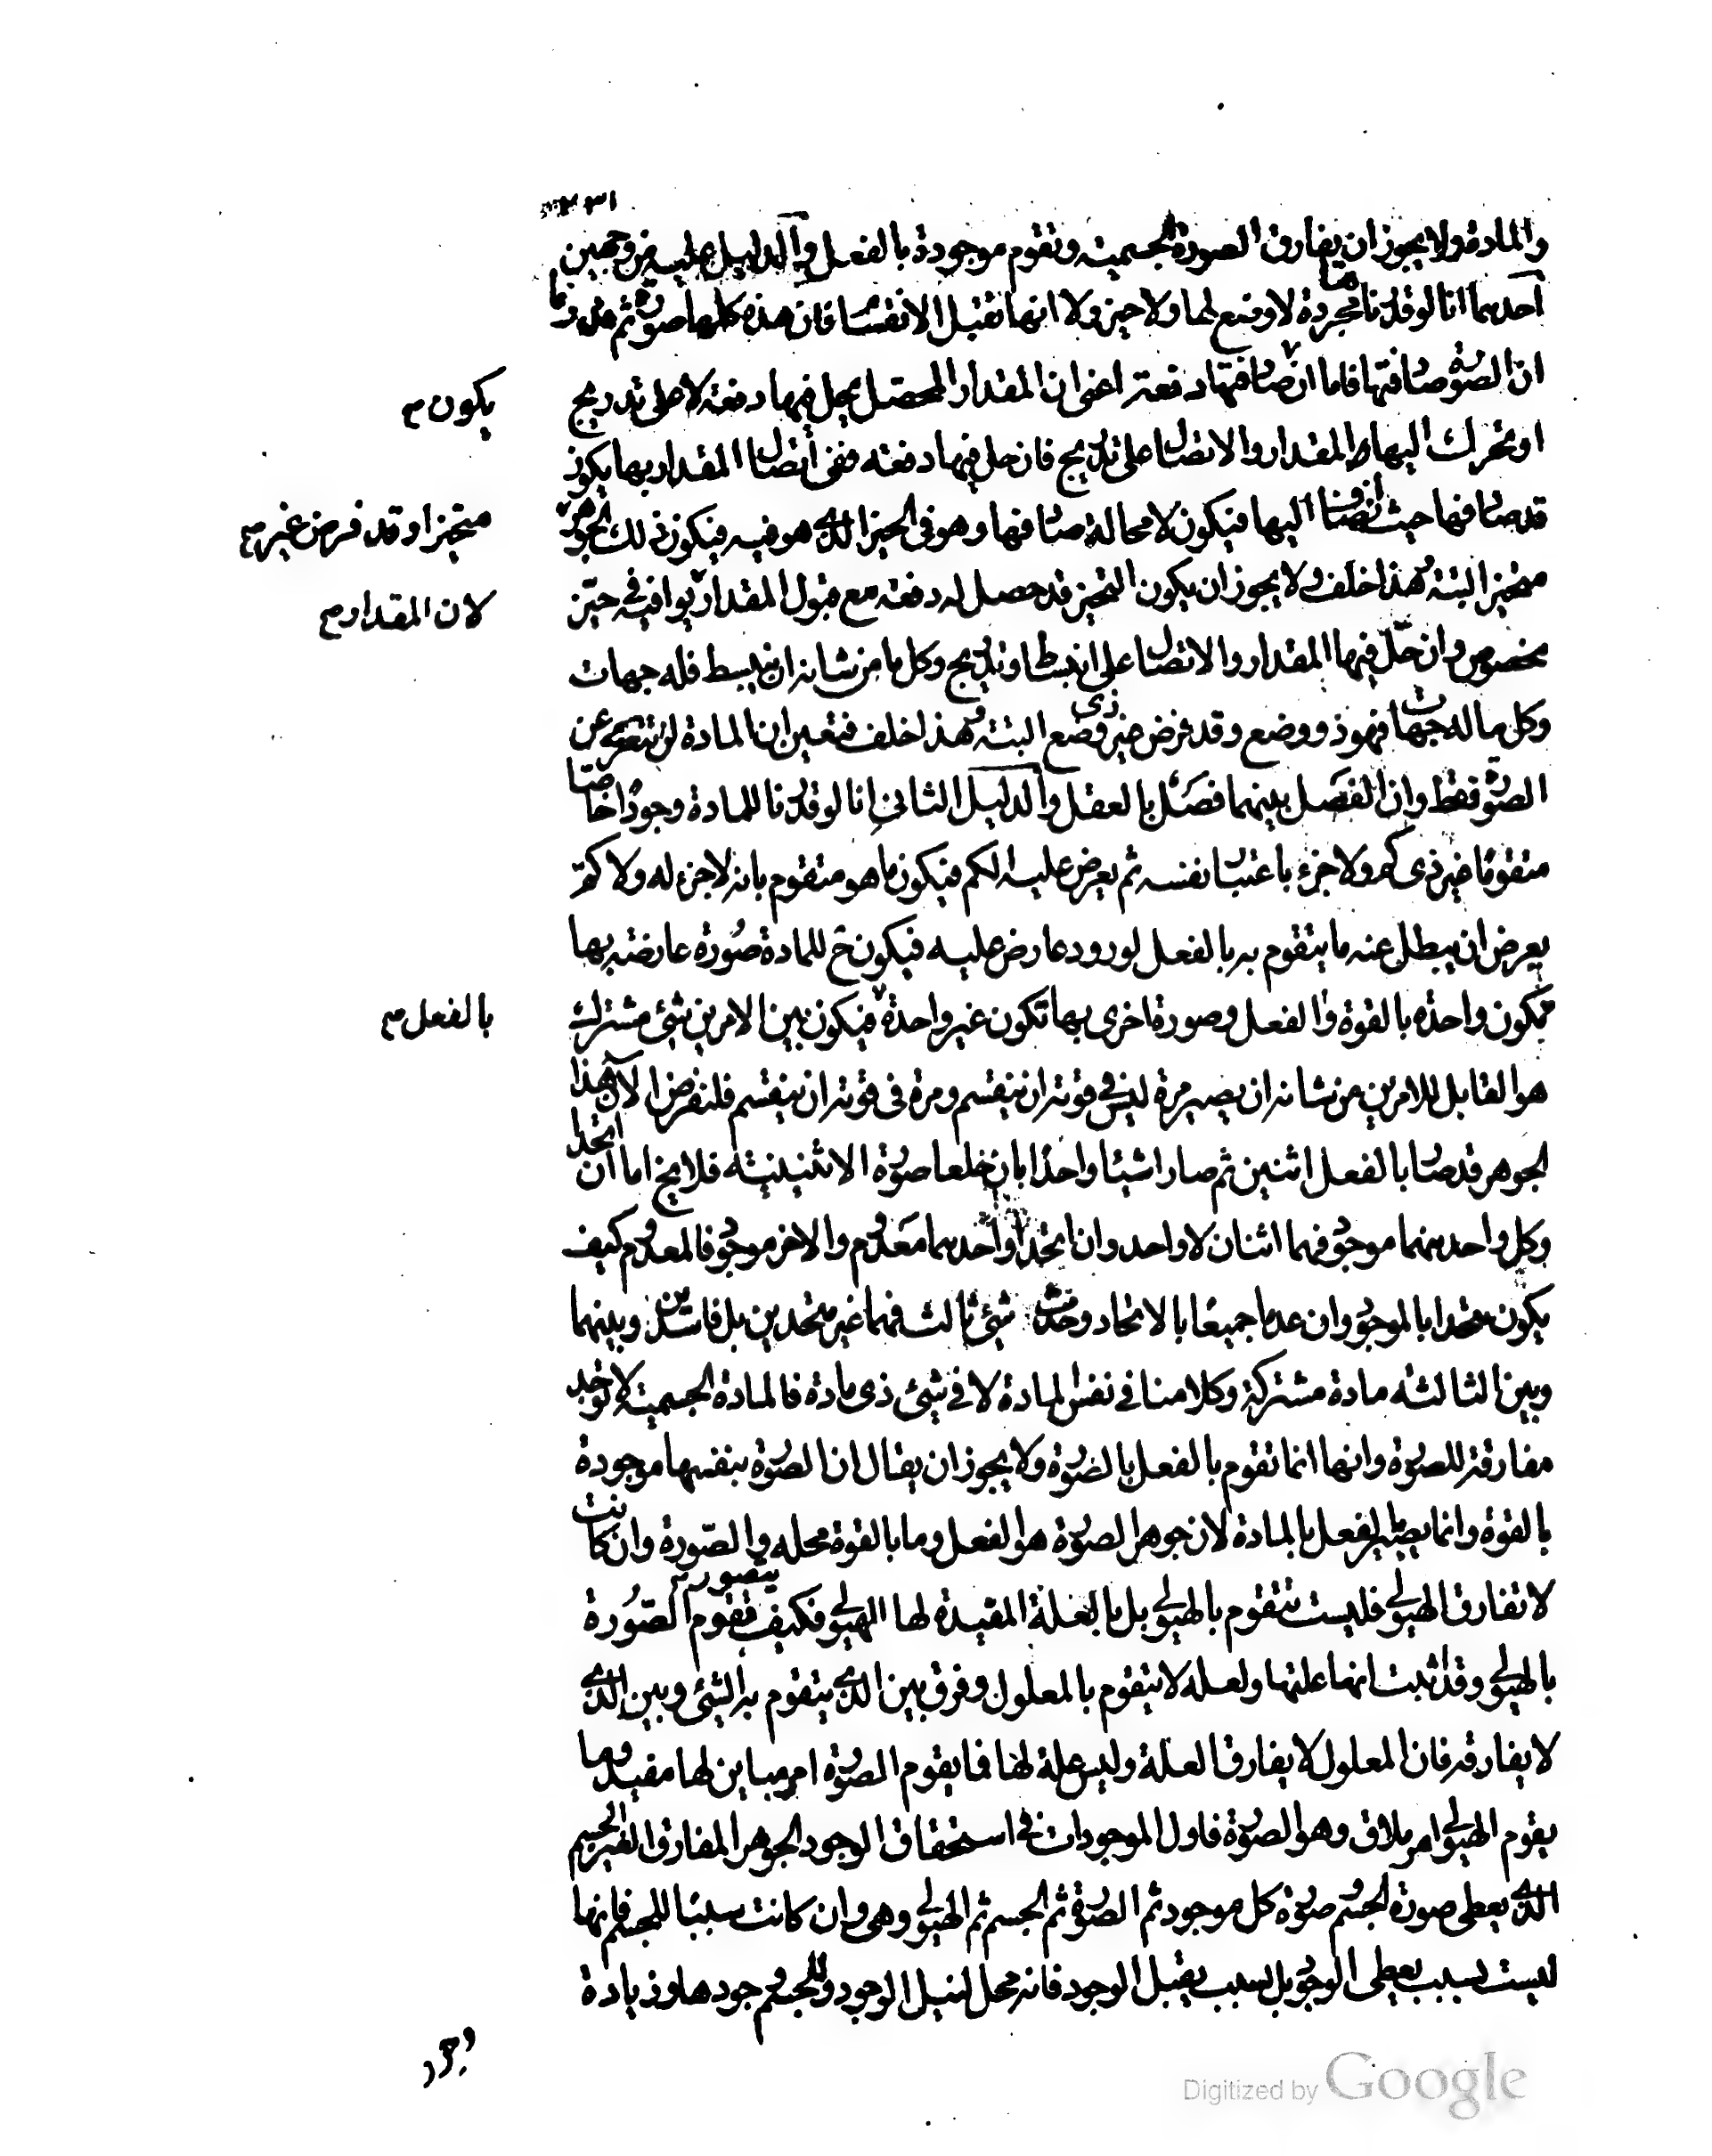 ٢٣١
والمادة ولا يجوز ان يفارق الصورة الجسمية وتقوم موجودة بالفعل والدليل عليه من وجهين
احدهما انا لو قدرناها مجردة لا وضع لها ولا حيز ولا انها تقبل الانقسام فان هذه كلها صورة ثم قدرنا
ان الصورة صادفتها فاما ان صادفتها دفعة اعنى ان المقدار المحصل يحل فيها دفعة لا على تدريج
يكون
او تحرك اليها المقدار والاتصال على تدريج فان حل فيها دفعة ففى اتصال المقدار بها يكون
قد صادفها حيث انضاف اليها فيكون لا محالة صادفها وهو فى الحيز الذى هو فيه فيكون ذلك الجوهر
متحيزا وقد فرض غير
متحيز البتة وهذا خلف ولا يجوز ان يكون التحيز قد حصل له دفعة مع قبول المقدار يوافيه فى حيز
لان المقدار
مخصوص وان حل فيها المقدار والاتصال على انبساط وتدريج وكل ما من شانه ان ينبسط فله جهات
وكل ما له جهات فهو ذو وضع وقد فرض غير ذى وضع البتة وهذا خلف فتعين ان المادة لن تتعرى عن
الصورة فقط وان الفصل بينهما فصل بالعقل والدليل الثانى انا لو قدرنا للمادة وجودا خاصا
متقوما غير ذى كم ولا جزء باعتبار نفسه ثم يعرض عليه الكم فيكون ما هو متقوم بانه لا جزء له ولا كم
يعرض ان يبطل عنه ما يتقوم به بالفعل لورود عارض عليه فيكون ح للمادة صورة عارضة بها
تكون واحدة بالقوة والفعل وصورة اخرى بها تكون غير واحدة فيكون بين الامرين شئ مشترك
بالفعل
هو القابل للامرين من شانه ان يصير مرة ليس فى قوته ان ينقسم ومرة فى قوته ان ينقسم فلنفرض الآن هذا
الجوهر قد صار بالفعل اثنين ثم صارا شيئا واحدا بان خلعا صورة الاثنينية فلا يخ اما ان اتحدا
وكل واحد منهما موجود فهما اثنان لا واحد وان اتحدا واحدهما معدوم والاخر موجود فالمعدوم كيف
يكون متحدا بالموجود وان عدما جميعا بالاتحاد وحدث شئ ثالث فهما غير متحدين بل فاسدين وبينهما
وبين الثالث مادة مشتركة وكلامنا فى نفس المادة لا فى شئ ذى مادة فالمادة الجسمية لا توجد
مفارقة للصورة وانها انما تقوم بالفعل بالصورة ولا يجوز ان يقال ان الصورة بنفسها موجودة
بالقوة وانما يصير بالفعل بالمادة لان جوهر الصورة هو الفعل وما بالقوة محله والصورة وان كانت
لا تفارق الهيولى فليست تتقوم بالهيولى بل بالعلة المفيدة لها الهيولى فكيف يتصور تقوم الصورة
بالهيولى وقد اثبت انها علتها ولعله لا يتقوم بالمعلول وفرق بين الذى يتقوم به الشئ وبين الذى
لا يفارقه فان المعلول لا يفارق العلة وليس علة لها فما يقوم الصورة امر مباين لها مفيد وما
يقوم الهيولى امر ملاق وهو الصورة فاول الموجودات فى استحقاق الوجود الجوهر المفارق الغير الجسم
الذى يعطى صورة الجسم وصورة كل موجود ثم الصورة ثم الجسم ثم الهيولى وهى وان كانت سببا للجسم فانها
ليست بسبب يعطى الوجود بل بسبب يقبل الوجود فانه محل لنيل الوجود وللجسم وجودها وزيادة
وجود
Digitized by Google